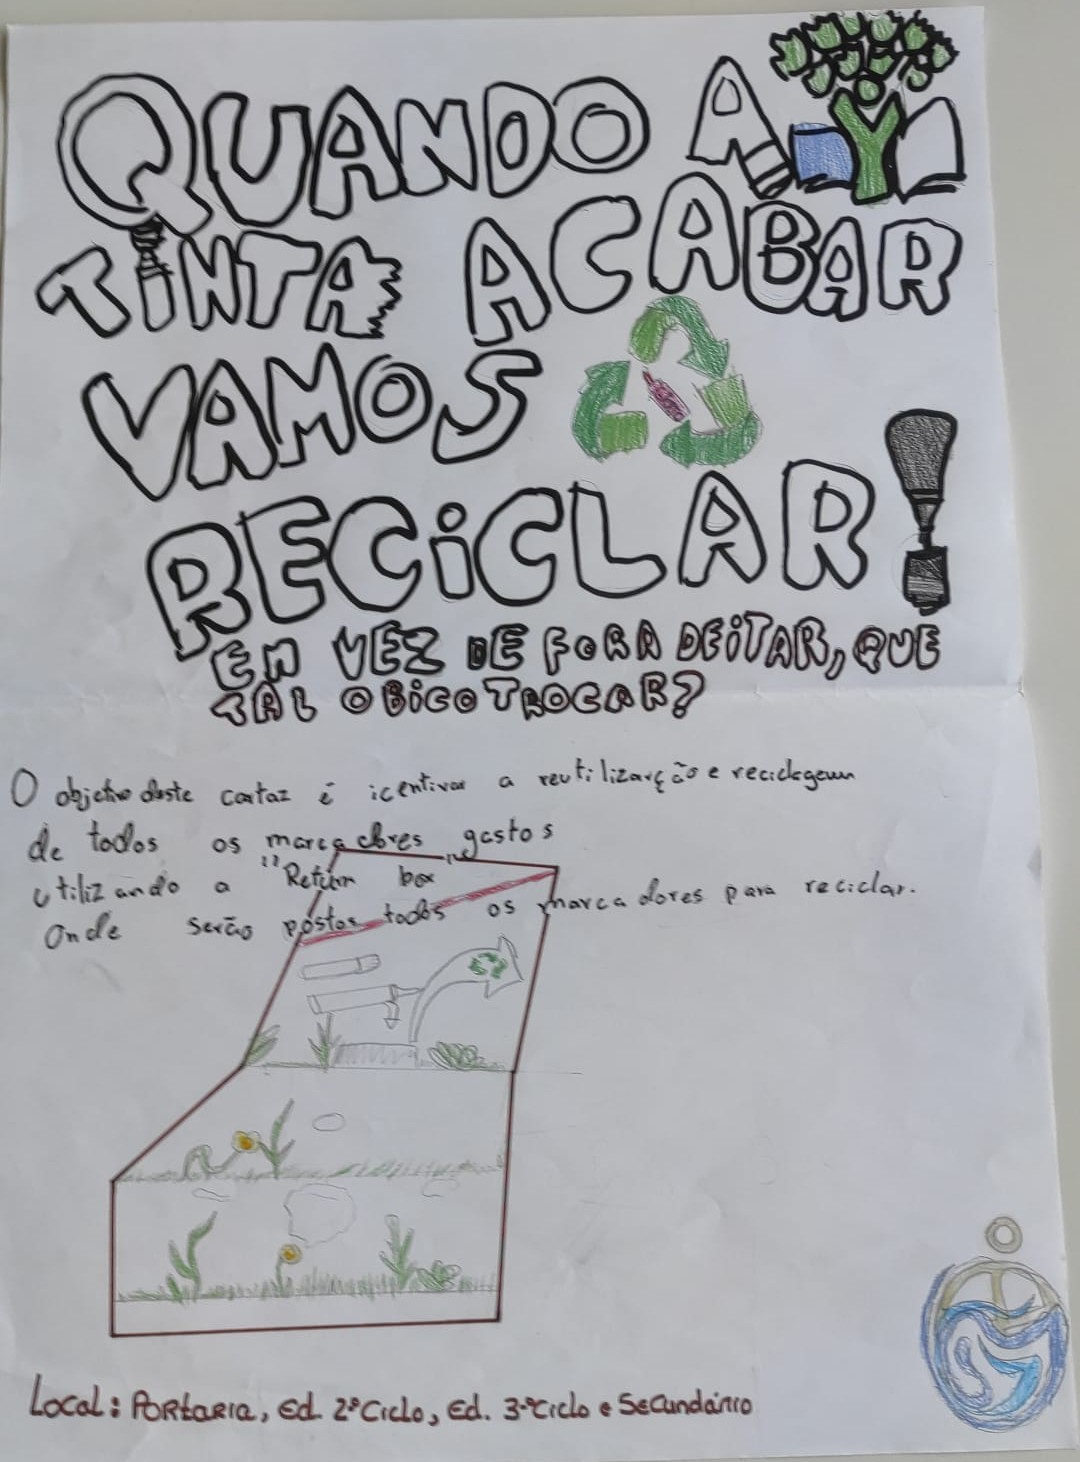 QUANDO A
TINTA ACABAR
VAMOS
RECICLAR!
EM VEZ DE FORA DEITAR, QUE
TAL O BICO TROCAR?
O objetivo deste cartaz é icentivar a reutilizarção e reciclagem
de todos os marcadores gastos
utilizando a "Return box"
Onde serão postos todos os marcadores para reciclar.
Local: Portaria, Ed. 2º Ciclo, Ed. 3.º Ciclo e Secundário